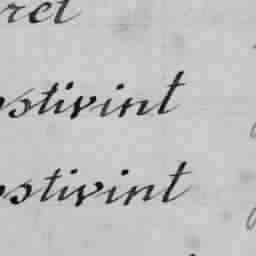 rct
ostivint
ostivint